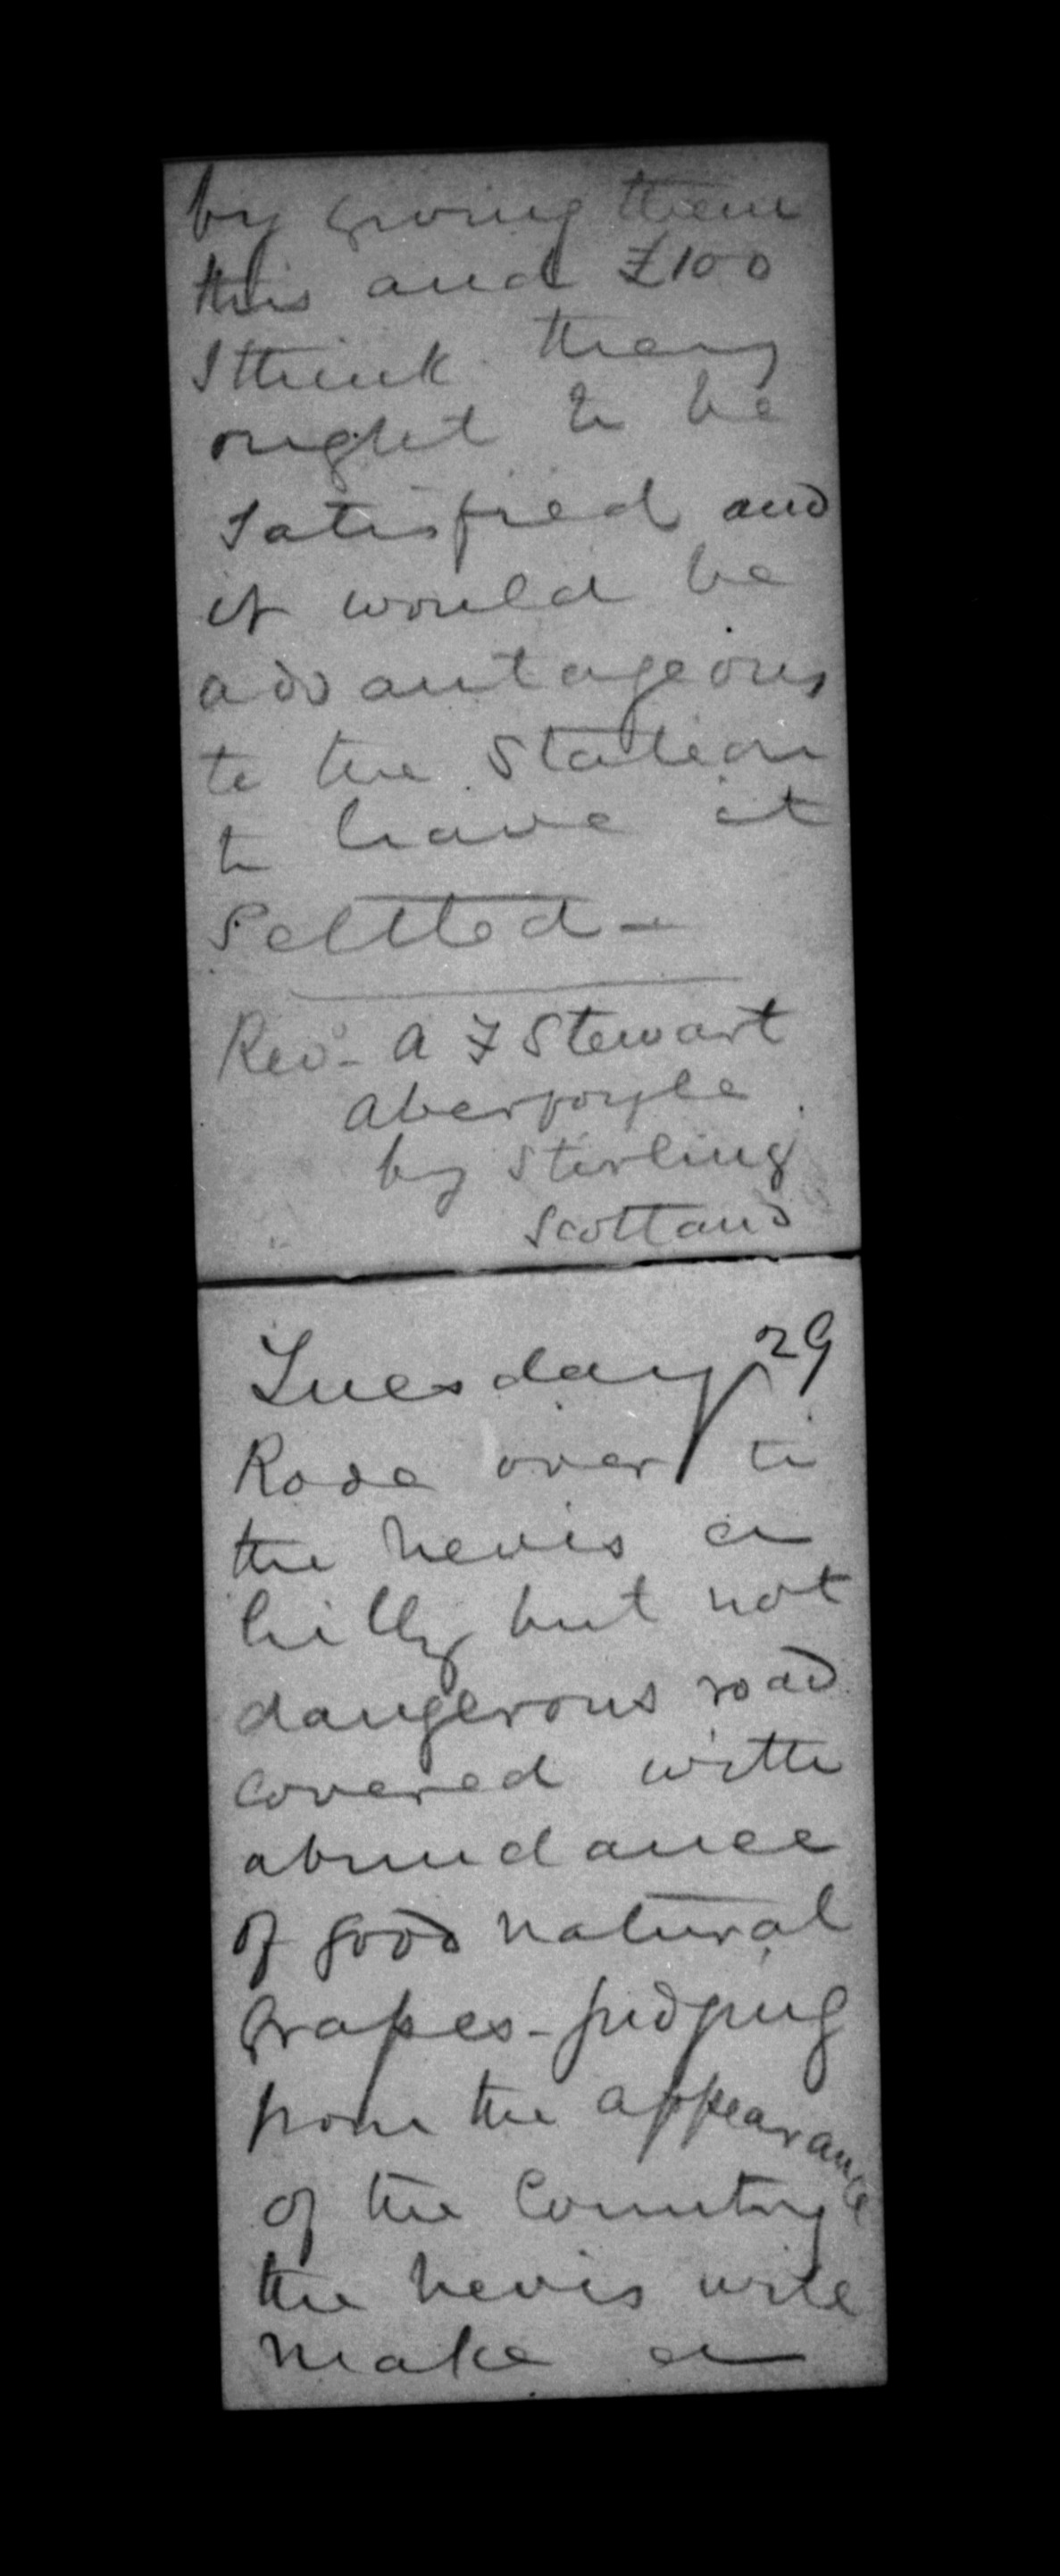 by giving them
this and £100
I think they
ought to be
satisfied and
it would be
advantageous
to the Station
to have it
Settled -
Revd - A F Stewart
Aberfoyle
by Stirling
Scotland
Tuesday 29
Rode over to
the Nevis a
hilly but not
dangerous road
covered with
abundance
of good natural
Grapes - judging
from the appearance
of the Country
the Nevis will
make a